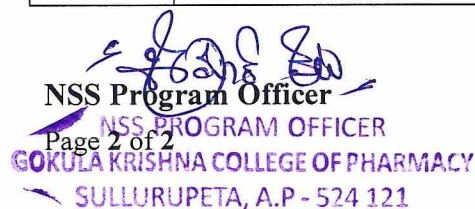 NSS Program Officer
NSS PROGRAM OFFICER
Page 2 of 2
GOKULA KRISHNA COLLEGE OF PHARMACY
SULLURUPETA, A.P - 524 121